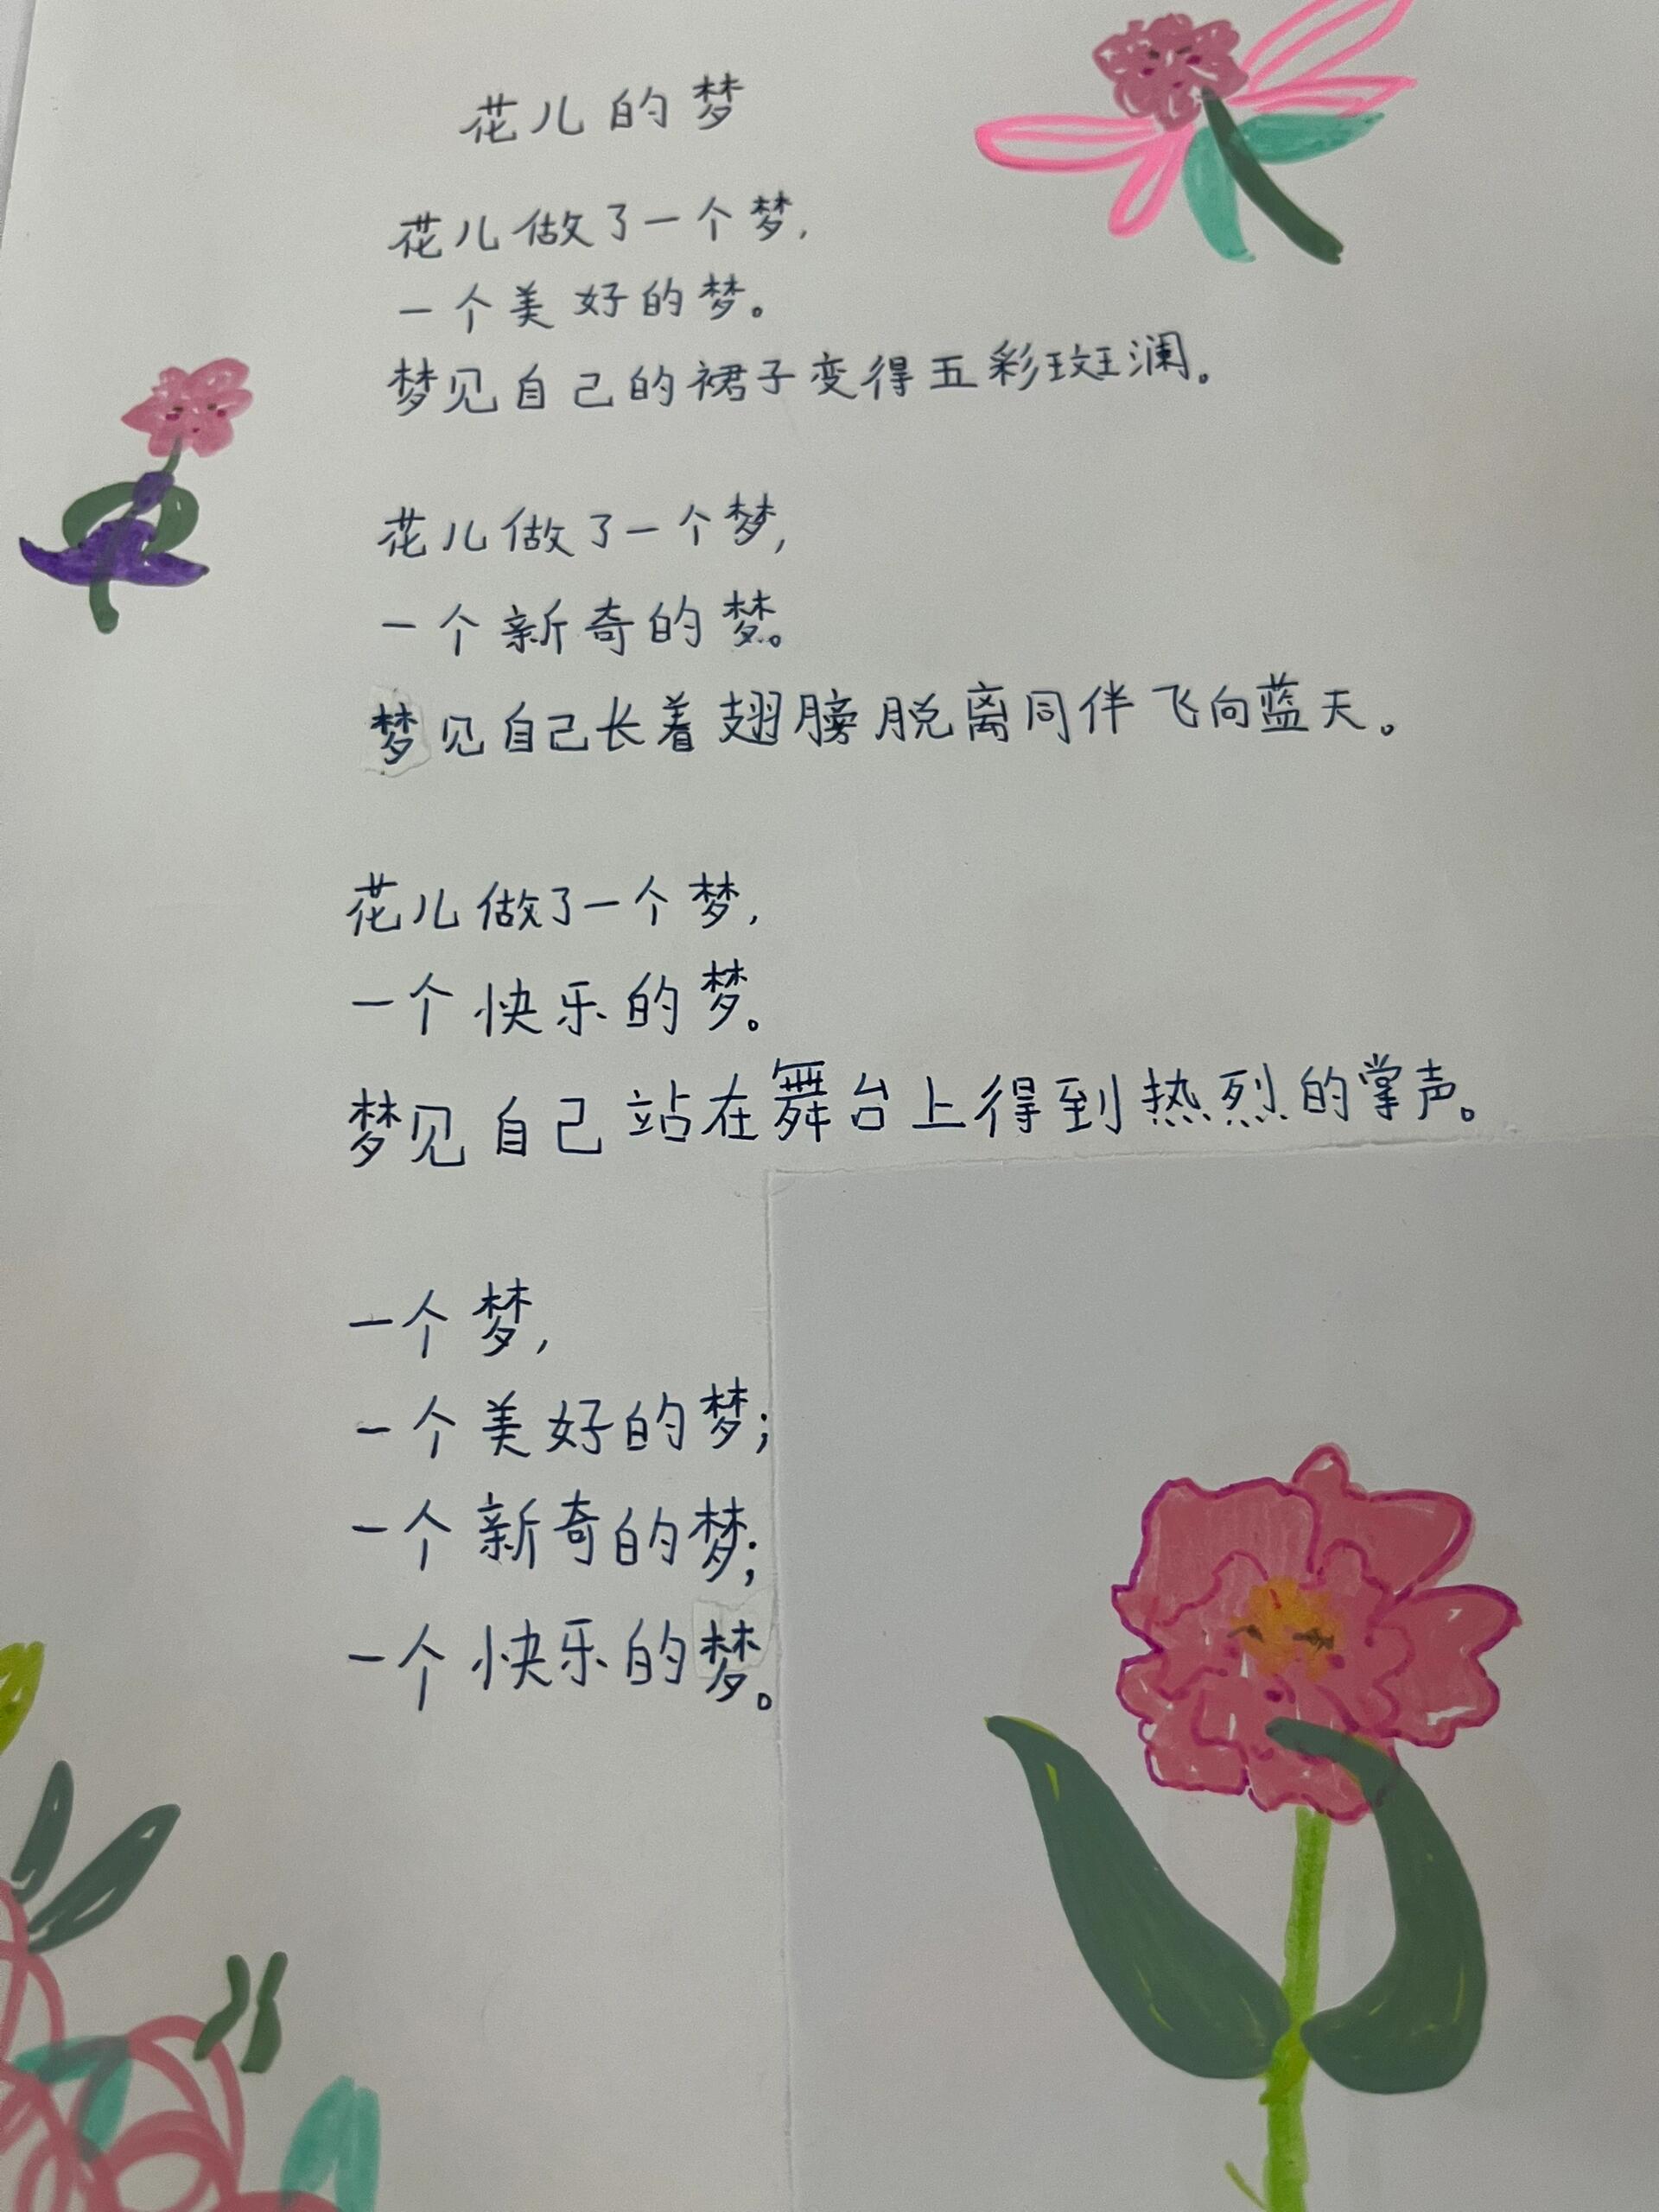 花儿的梦
花儿做了一个梦，
一个美好的梦。
梦见自己的裙子变得五彩斑澜。
花儿做了一个梦，
一个新奇的梦。
梦见自己长着翅膀脱离同伴飞向蓝天。
花儿做了一个梦，
一个快乐的梦。
梦见自己站在舞台上得到热烈的掌声。
一个梦，
一个美好的梦；
一个新奇的梦；
一个快乐的梦。